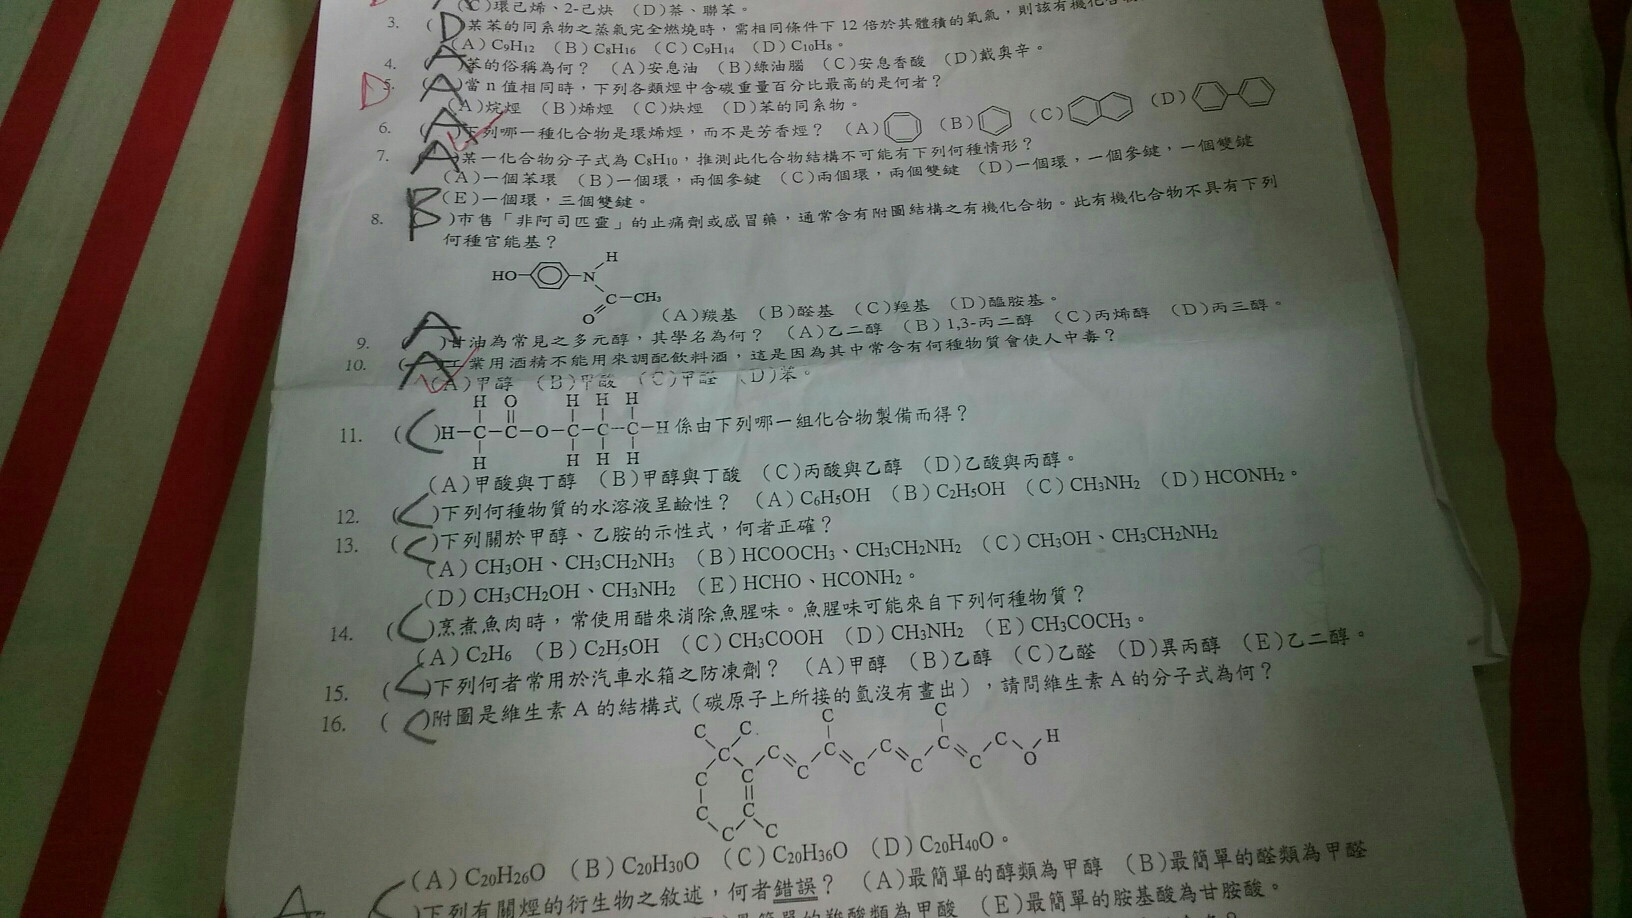 (C)環己烯、2-己炔 (D)萘、聯苯。
3. (D)某苯的同系物之蒸氣完全燃燒時,需相同條件下12倍於其體積的氧氣,則該有機化合
(A)C9H12 (B)C8H16 (C)C9H14 (D)C10H8。
4. (A)苯的俗稱為何? (A)安息油 (B)綠油腦 (C)安息香酸 (D)戴奧辛。
D 5. (A)當n值相同時,下列各類烴中含碳重量百分比最高的是何者?
(A)烷烴 (B)烯烴 (C)炔烴 (D)苯的同系物。
6. (A)下列哪一種化合物是環烯烴,而不是芳香烴? (A) (B) (C) (D)
7. (A)某一化合物分子式為C8H10,推測此化合物結構不可能有下列何種情形?
(A)一個苯環 (B)一個環,兩個參鍵 (C)兩個環,兩個雙鍵 (D)一個環,一個參鍵,一個雙鍵
(E)一個環,三個雙鍵。
8. (B)市售「非阿司匹靈」的止痛劑或感冒藥,通常含有附圖結構之有機化合物。此有機化合物不具有下列
何種官能基?
H
HO N
C-CH3
O
(A)羰基 (B)醛基 (C)羥基 (D)醯胺基。
9. (A)甘油為常見之多元醇,其學名為何? (A)乙二醇 (B)1,3-丙二醇 (C)丙烯醇 (D)丙三醇。
10. (A)工業用酒精不能用來調配飲料酒,這是因為其中常含有何種物質會使人中毒?
(A)甲醇 (B)甲酸 (C)甲醛 (D)苯。
H O H H H
11. (C)H-C-C-O-C-C-C-H係由下列哪一組化合物製備而得?
H H H H
(A)甲酸與丁醇 (B)甲醇與丁酸 (C)丙酸與乙醇 (D)乙酸與丙醇。
12. (C)下列何種物質的水溶液呈鹼性? (A)C6H5OH (B)C2H5OH (C)CH3NH2 (D)HCONH2。
13. (C)下列關於甲醇、乙胺的示性式,何者正確?
(A)CH3OH、CH3CH2NH3 (B)HCOOCH3、CH3CH2NH2 (C)CH3OH、CH3CH2NH2
(D)CH3CH2OH、CH3NH2 (E)HCHO、HCONH2。
14. (C)烹煮魚肉時,常使用醋來消除魚腥味。魚腥味可能來自下列何種物質?
(A)C2H6 (B)C2H5OH (C)CH3COOH (D)CH3NH2 (E)CH3COCH3。
15. (C)下列何者常用於汽車水箱之防凍劑? (A)甲醇 (B)乙醇 (C)乙醛 (D)異丙醇 (E)乙二醇。
16. (C)附圖是維生素A的結構式(碳原子上所接的氫沒有畫出),請問維生素A的分子式為何?
C C C C
C C C C C C H
C C C C C C O
C C
C C
(A)C20H26O (B)C20H30O (C)C20H36O (D)C20H40O。
A (C)下列有關烴的衍生物之敘述,何者錯誤? (A)最簡單的醇類為甲醇 (B)最簡單的醛類為甲醛
最簡單的羧酸類為甲酸 (E)最簡單的胺基酸為甘胺酸。